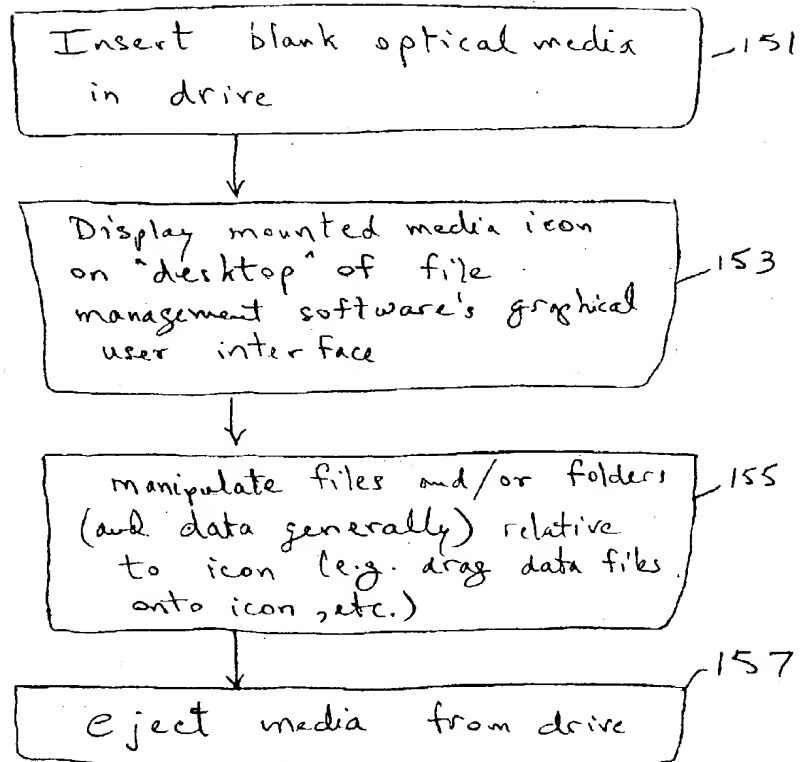 Insert blank optical media
in drive
151
Display mounted media icon
on "desktop" of file
management software's graphical
user interface
153
manipulate files and/or folders
(and data generally) relative
to icon (e.g. drag data files
onto icon, etc.)
155
eject media from drive
157